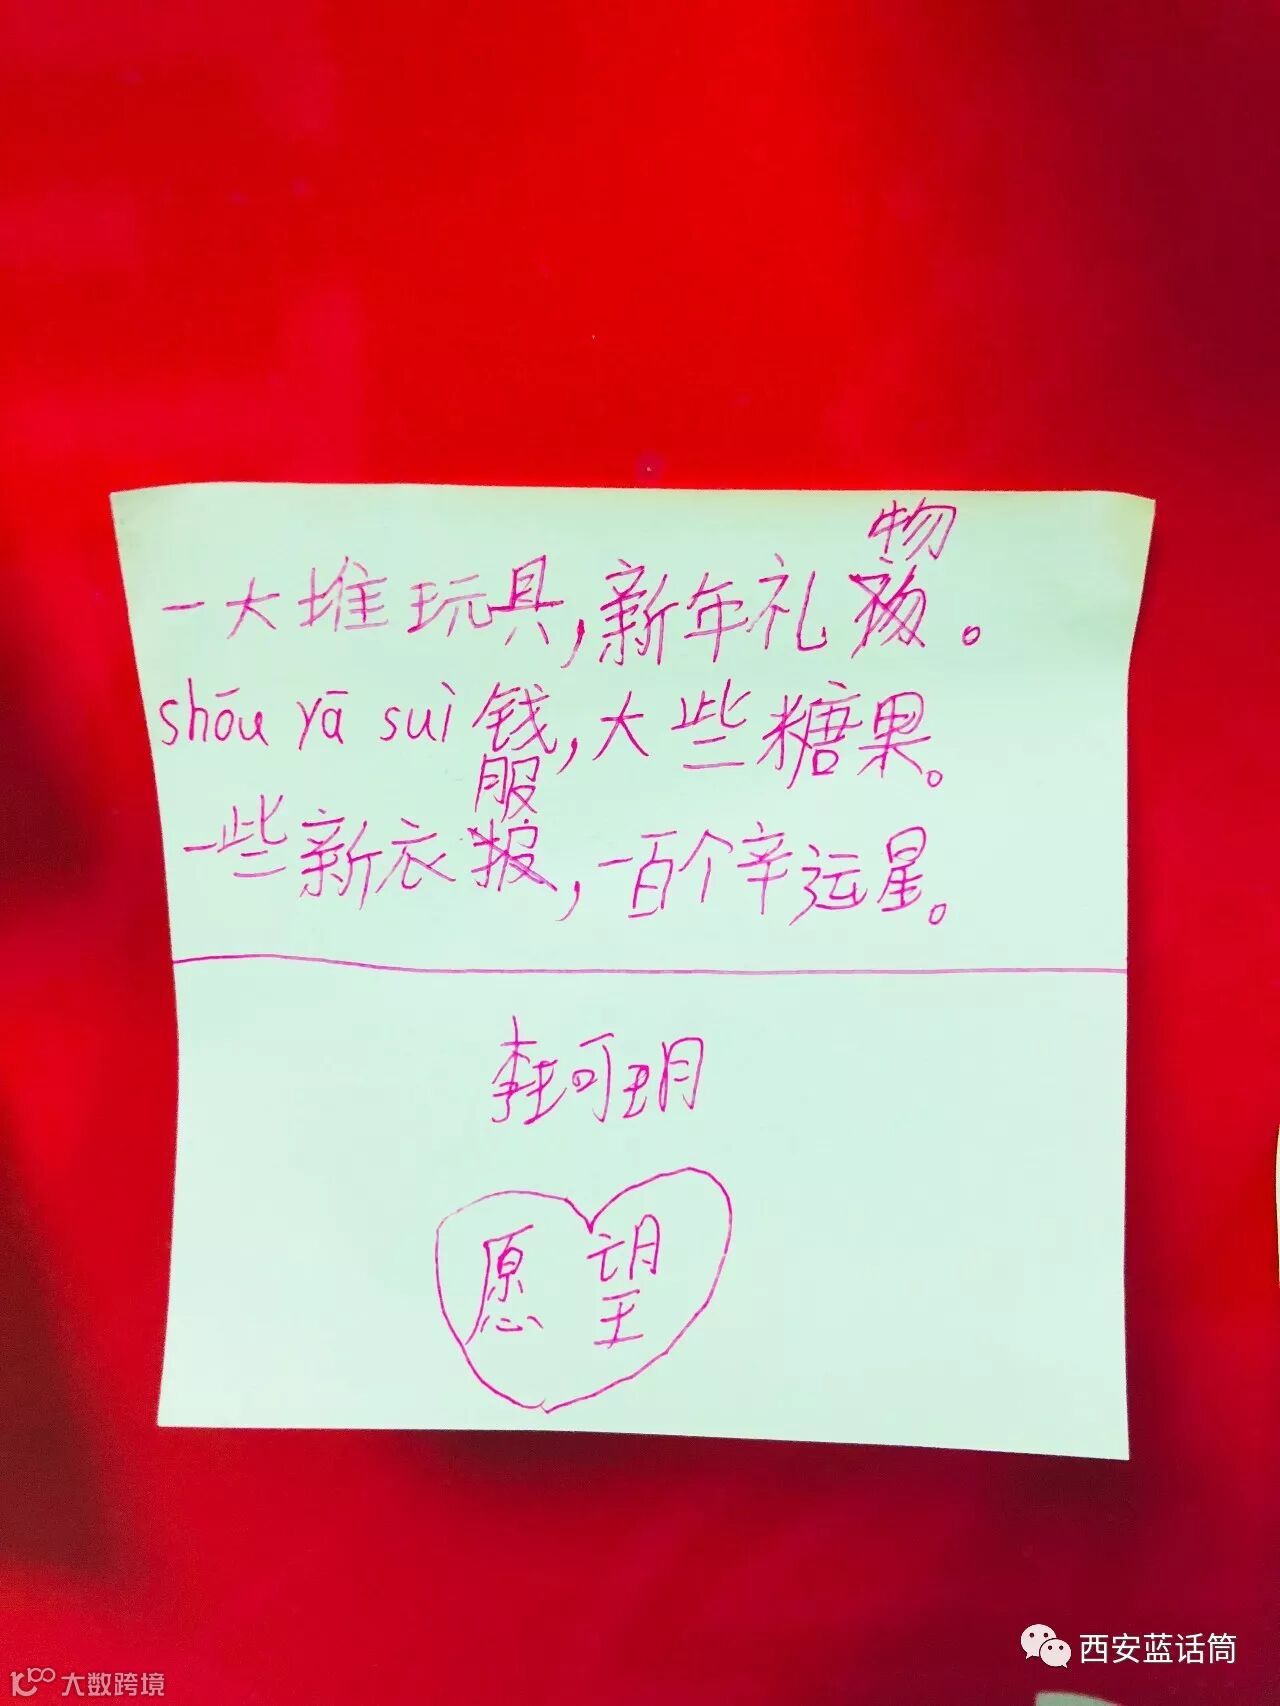 一大堆玩具,新年礼物。
shōu yā suì钱,大些糖果。
一些新衣服,一百个辛运星。
李可玥
愿望
西安蓝话筒
大数跨境